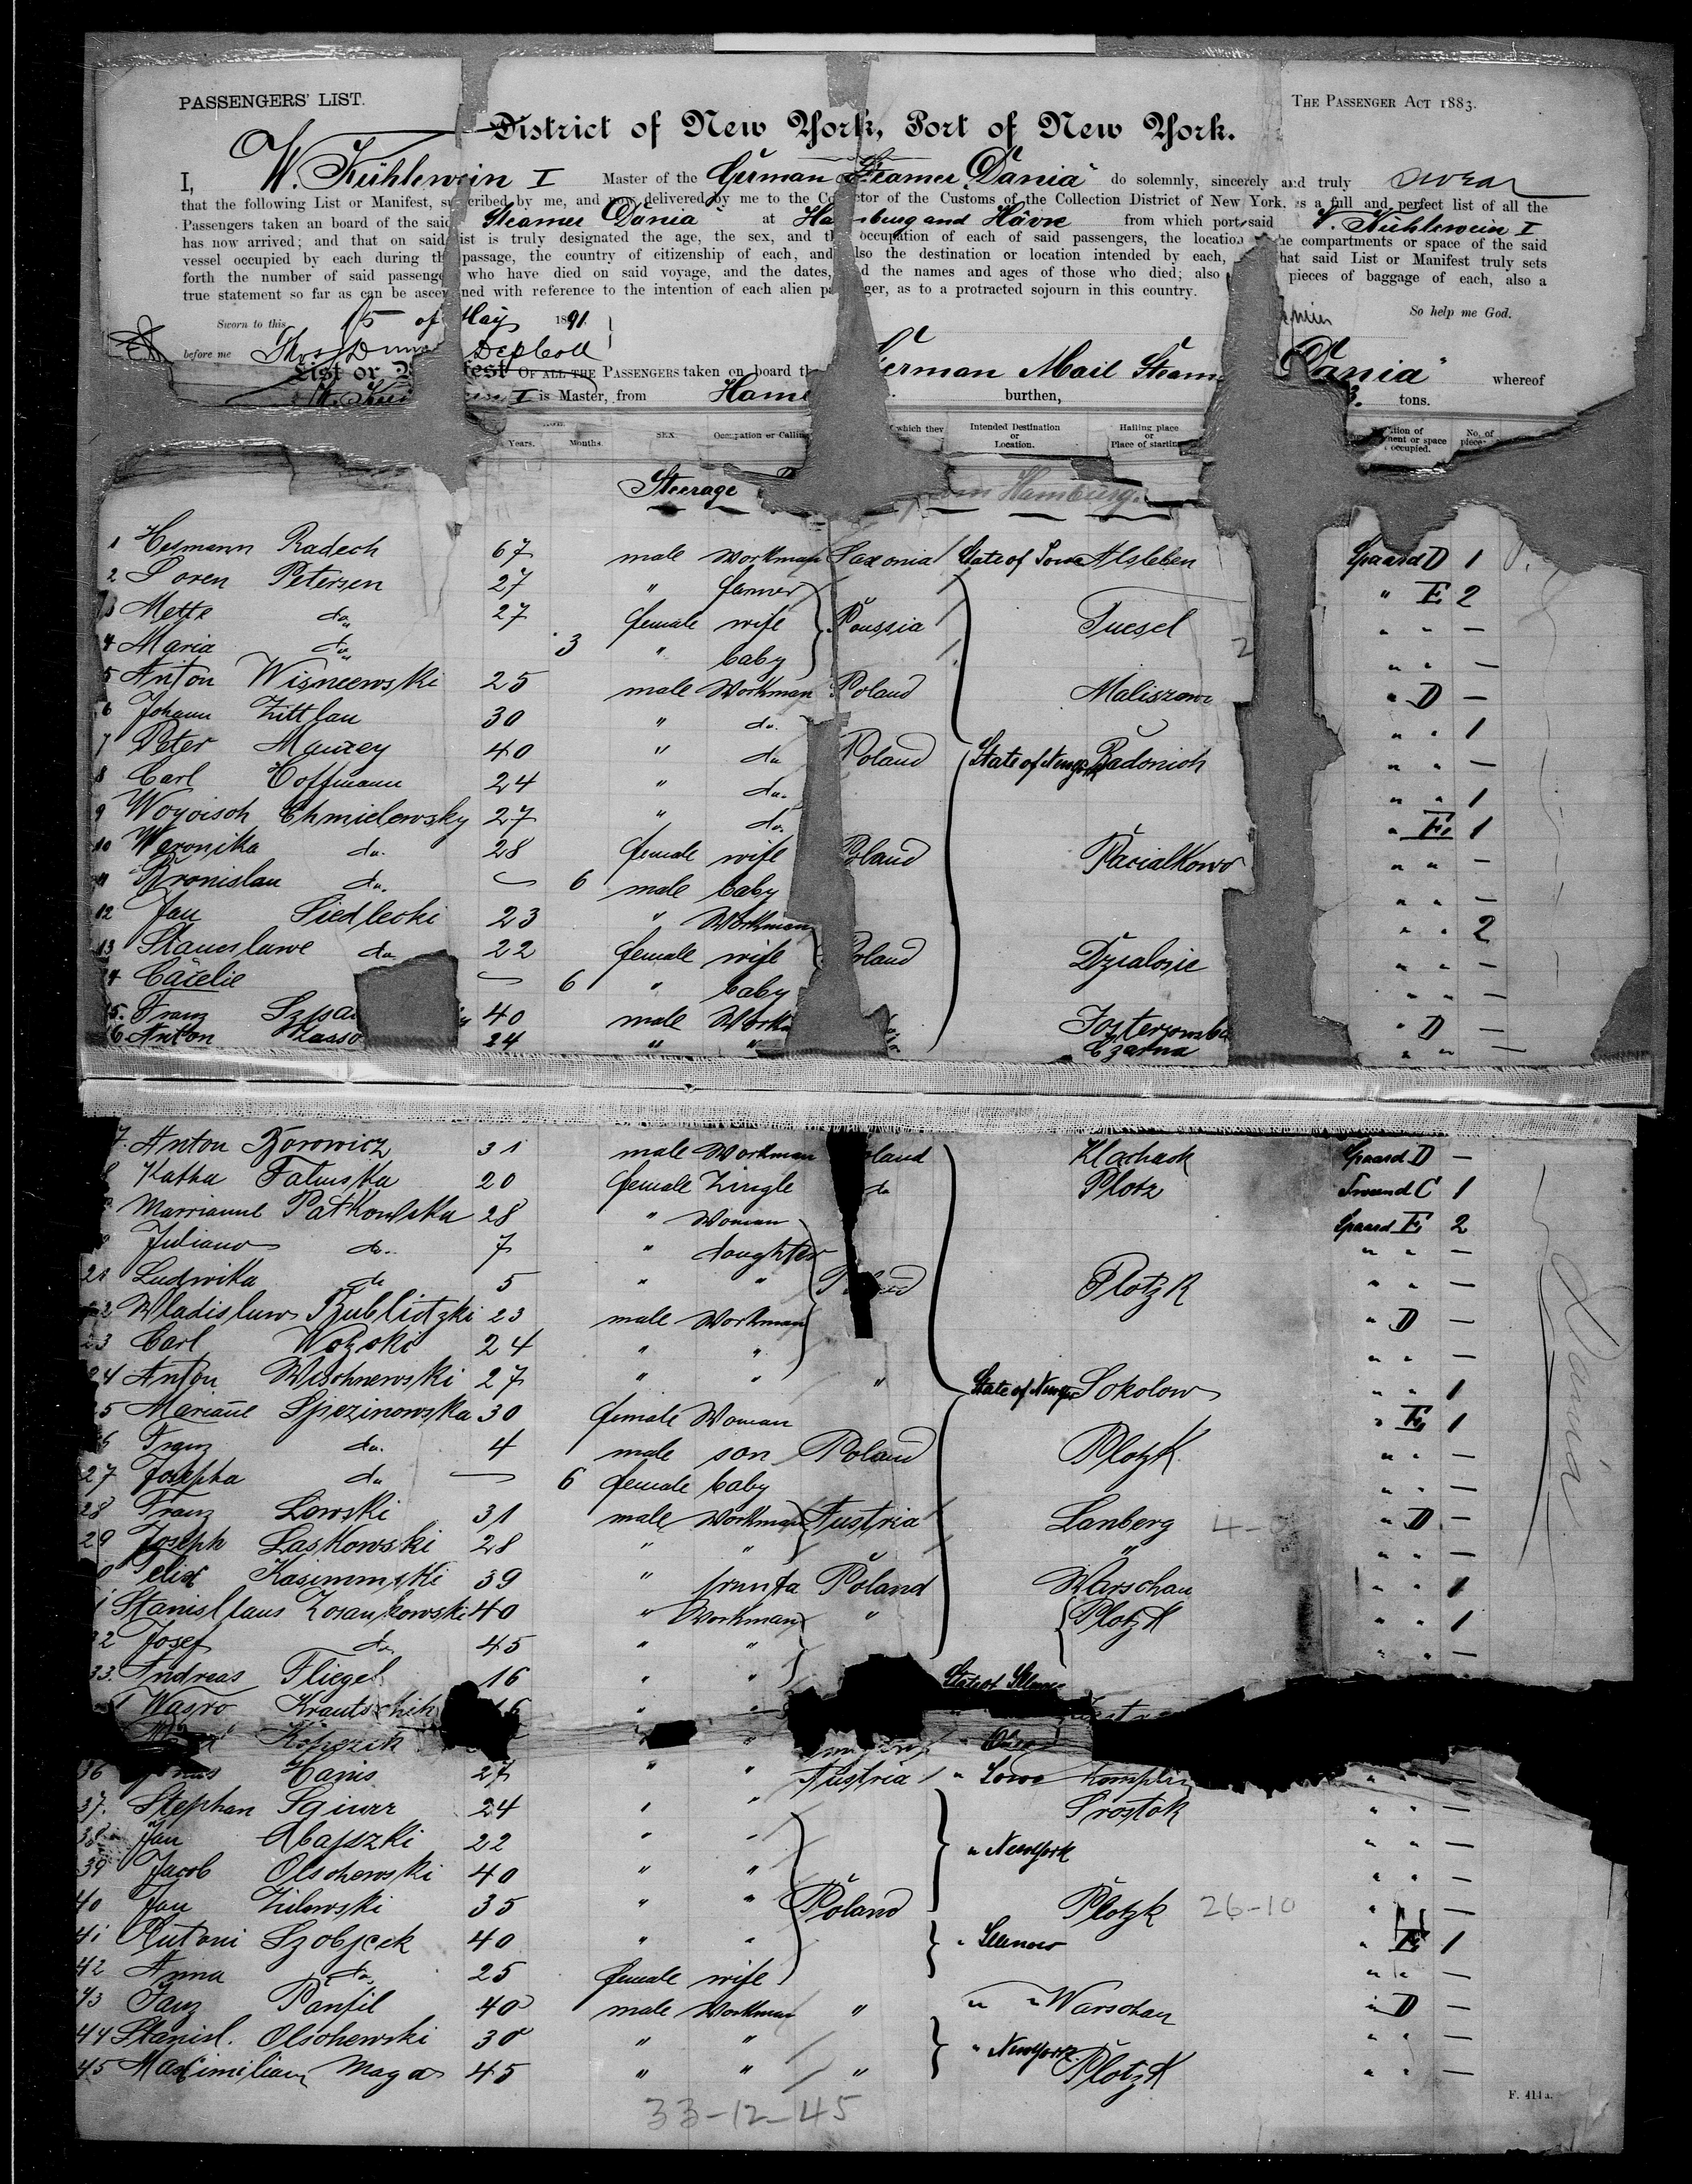 PASSENGERS' LIST.
THE PASSENGER ACT 1883.
District of New York, Port of New York.
I, W. Kühlewein I Master of the German Steamer "Dania" do solemnly, sincerely and truly swear
that the following List or Manifest, subscribed by me, and now delivered by me to the Collector of the Customs of the Collection District of New York, is a full and perfect list of all the
Passengers taken on board of the said Steamer "Dania" at Hamburg and Hâvre from which port said W. Kühlewein I
has now arrived; and that on said list is truly designated the age, the sex, and the occupation of each of said passengers, the location of the compartments or space of the said
vessel occupied by each during the passage, the country of citizenship of each, and also the destination or location intended by each, that said List or Manifest truly sets
forth the number of said passengers who have died on said voyage, and the dates, and the names and ages of those who died; also pieces of baggage of each, also a
true statement so far as can be ascertained with reference to the intention of each alien passenger, as to a protracted sojourn in this country.
Sworn to this 15 of May 1891.
So help me God.
before me Thos Dunn Dep Coll
List or Manifest OF ALL THE PASSENGERS taken on board the German Mail Steamer "Dania" whereof
I is Master, from Hamb burthen, tons.
Years. Months. SEX. Occupation or Calling which they Intended Destination or Location. Hailing place or Place of starting No. of
Steerage from Hamburg.
1 Hermann Radech 67 male workman Saxonia State of Iowa Alsleben Spaard D 1
2 Soren Petersen 27 " farmer " E 2
3 Mette do 27 female wife Prussia Tuesel " " —
4 Maria do 3 " baby " " —
5 Anton Wisneewski 25 male Workman Poland Maliszewo " D —
6 Johann Zittlau 30 " do. " " 1
7 Peter Manzey 40 " do Poland State of Newyork Radonich " " —
8 Carl Hoffmann 24 " do. " " 1
9 Woyoisch Chmielewsky 27 " do. " E 1
10 Weronika do. 28 female wife Poland Pacialkowo " " —
11 Bronislau do. — 6 male baby " " —
12 Jan Siedlecki 23 " Workman " " 2
13 Stanislawe do 22 female wife Poland Dzialosie " " —
14 Cäcelie — 6 " baby " " —
15. Franz Szpa 40 male Workm " D —
16 Anton 24 " " Czarna " " —
7. Anton Borowicz 31 male Workman Poland Klachack Spaard D —
8 Katha Falmska 20 female Zingle do Plotz C 1
Marrianne Patkowska 28 " Woman Spaard E 2
Juliane do. 7 " daughter " " —
21 Ludwika do 5 " " Poland Plotzk " " —
22 Wladislaw Bublitzki 23 male Workman " D —
23 Carl Wolski 24 " " " " —
24 Anton Wischnewski 27 " " " State of Newyork Sokolow " " 1
25 Marianne Spezinowska 30 female Woman " E 1
26 Franz do. 4 male son Poland Plotzk. " " —
27 Josepha do — 6 female baby " " —
28 Franz Lowski 31 male Workman Austria Lanberg " D —
29 Joseph Laskowski 28 " " " " " —
Felix Kasimmski 39 " Poland Warschau " " 1
Stanisllaus 40 " Workman " Plotzk " " 1
32 Josef do 45 " " " " —
33. Andreas Fliegel 16 " " State of
Wasro Krautschik 16 " "
Kopczik " "
36 Hanis 27 " " Austria " Iowa " " —
37. Stephan 24 " " Prostok " " —
38 Jan Abajszki 22 " " " Newyork " " —
39 Jacob Olschewski 40 " " " " —
40 Jan Zilewski 35 " " Poland Plotzk 26-10 " " —
41 Antoni Szobjcek 40 " " " Illenois " E 1
42 Anna do 25 female wife " " —
43 Panfil 40 male Workman " " " Warschau " D —
44 Stanisl. Olschewski 30 " " " Newyork " " —
45 Maximilian Maga 45 " " " Plotzk " " —
33-12-45
Dania
F. 414 a.